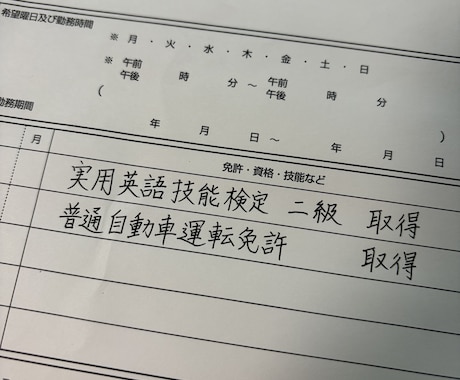 希望曜日及び勤務時間
※ 月 ・ 火 ・ 水 ・ 木 ・ 金 ・ 土 ・ 日
※ 午前 午後 時 分 ～ 午前 午後 時 分
( )
勤務期間
年 月 日 ～ 年 月 日
月 免許・資格・技能など
実用英語技能検定 二級 取得
普通自動車運転免許 取得